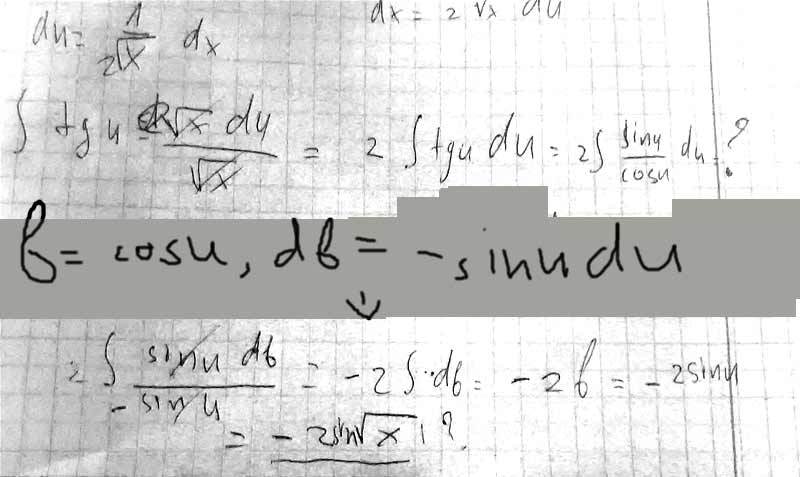 du = 1/(2√x) dx    dx = 2 √x du
∫ tg u · 2√x du / √x = 2 ∫ tg u du = 2 ∫ sin u / cos u du = ?
b = cos u, db = - sin u du
⇓
2 ∫ sin u db / - sin u = -2 ∫ ·· db = -2b = -2 sin u
= - 2 sin √x , ?